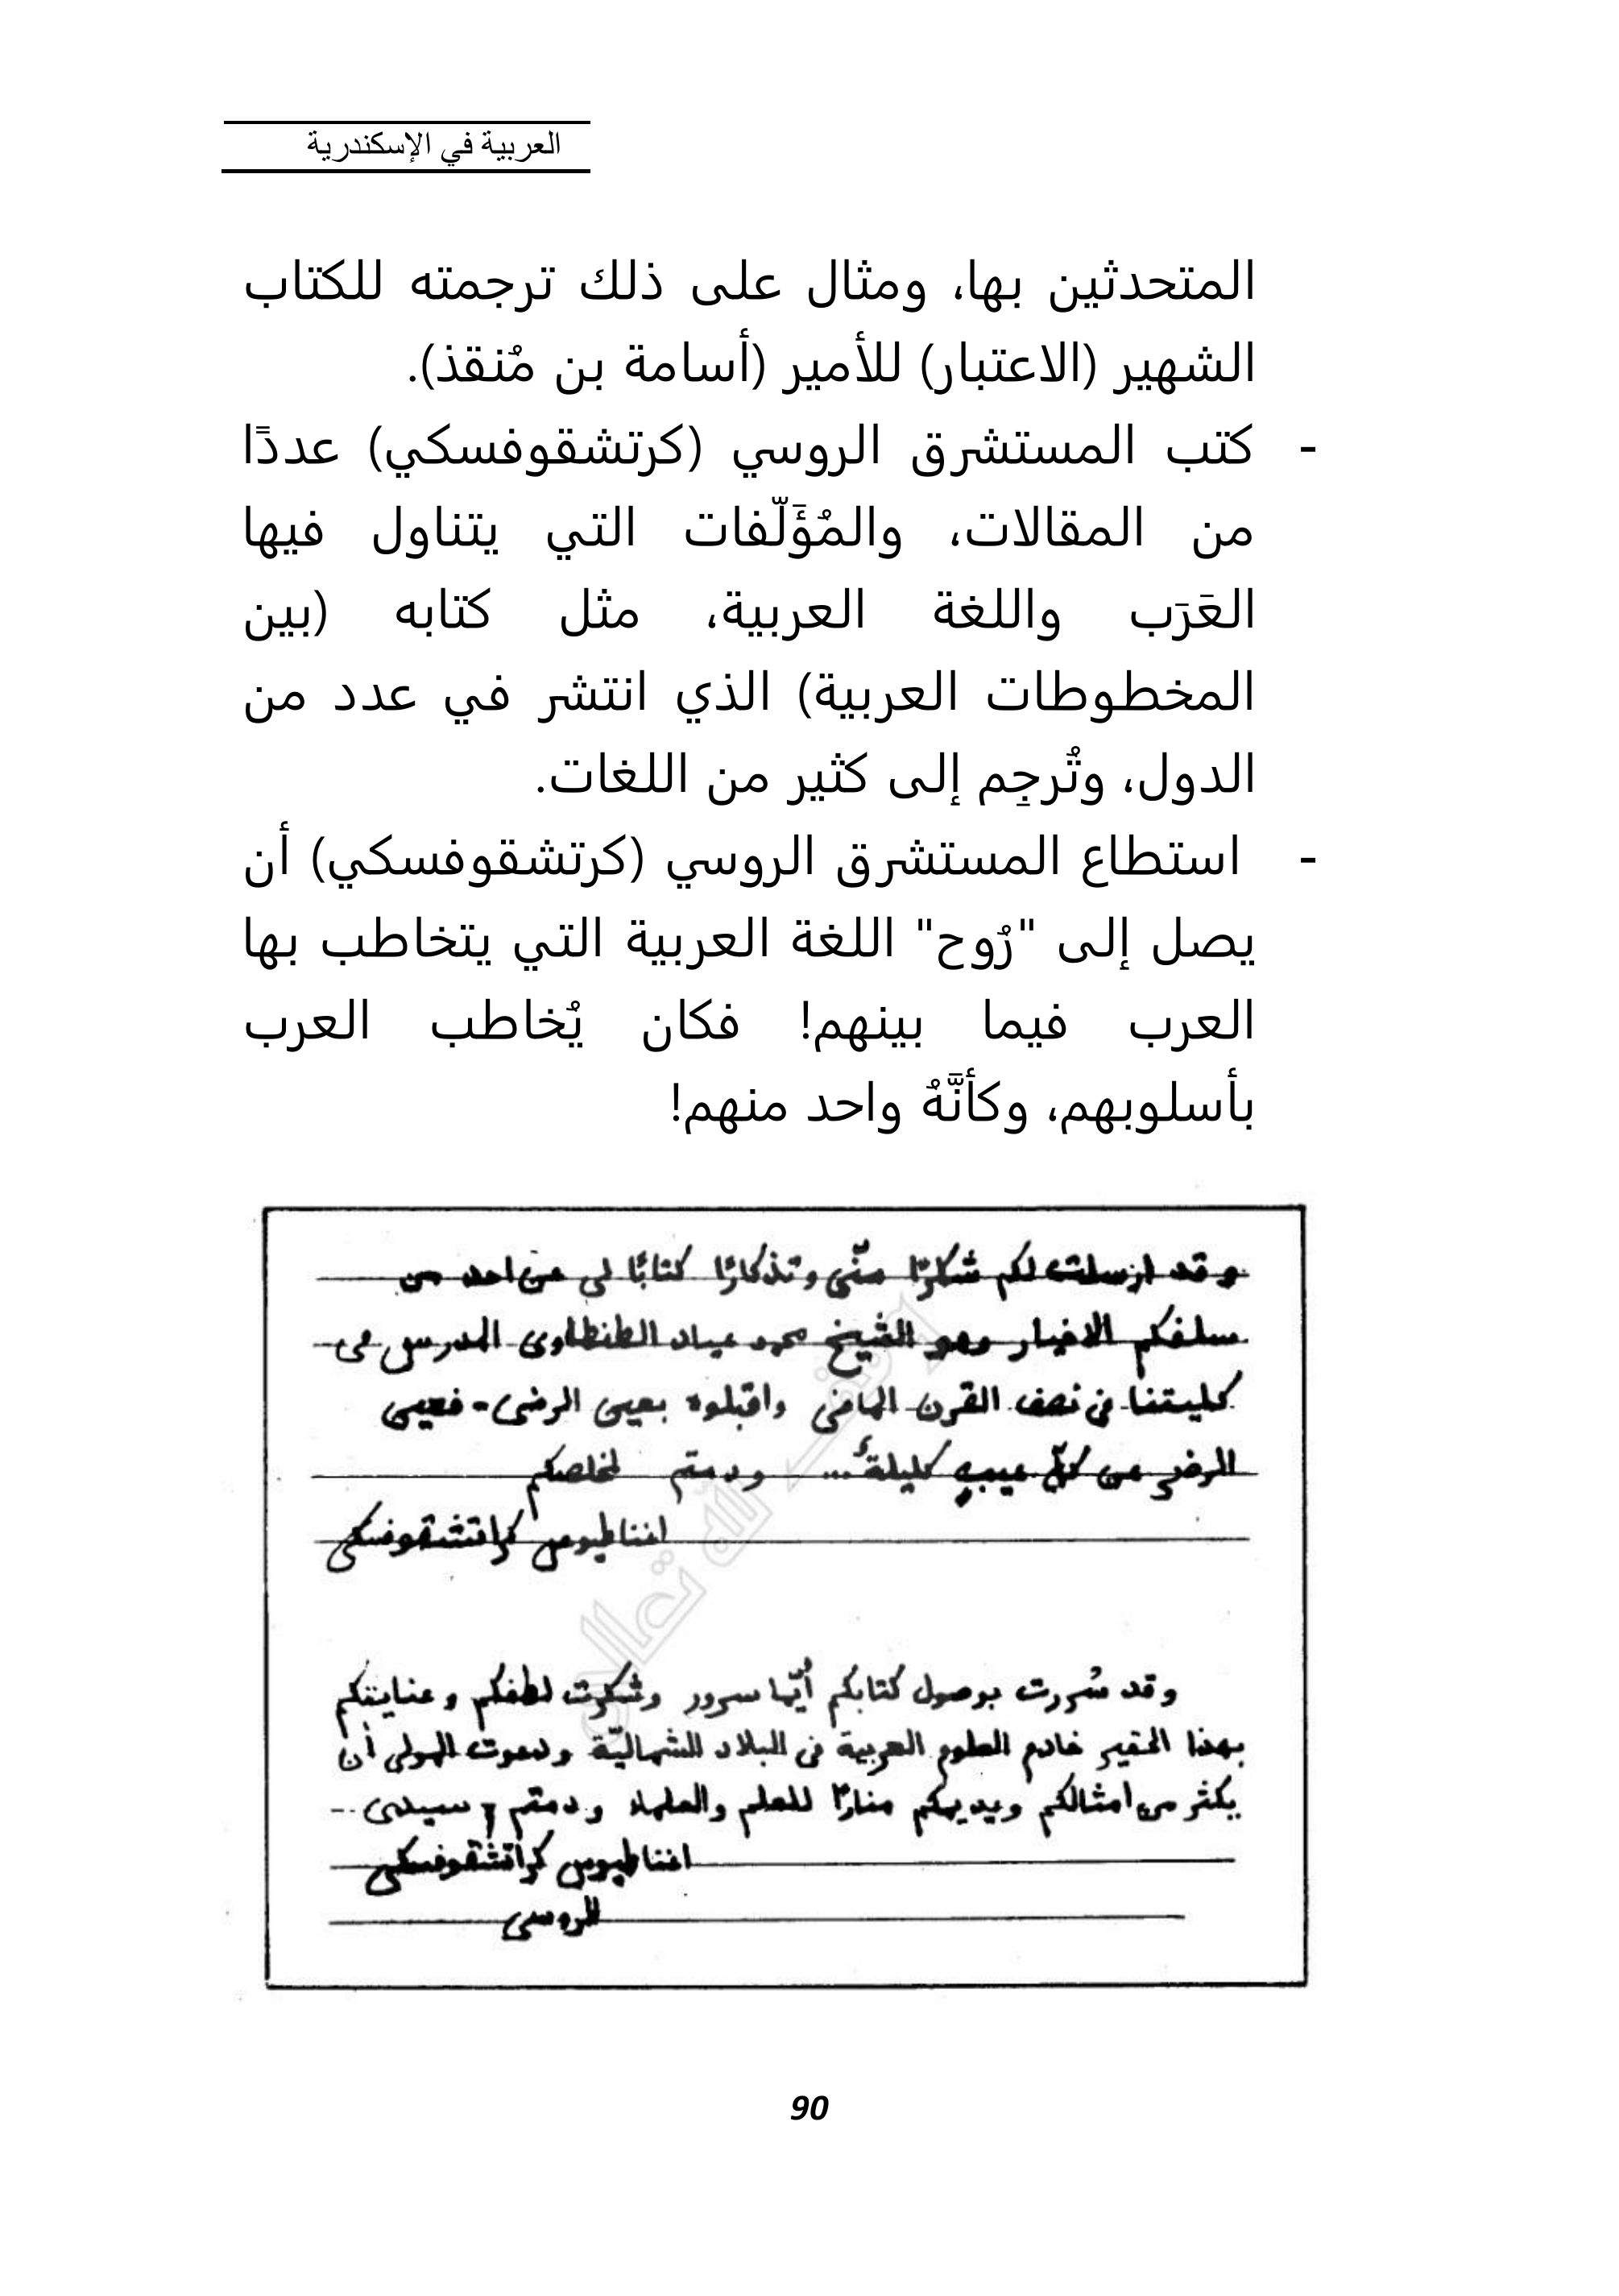 العربية في الإسكندرية
المتحدثين بها، ومثال على ذلك ترجمته للكتاب
الشهير (الاعتبار) للأمير (أسامة بن مُنقذ).
- كتب المستشرق الروسي (كرتشقوفسكي) عددًا
من المقالات، والمُؤَلّفات التي يتناول فيها
العَرَب واللغة العربية، مثل كتابه (بين
المخطوطات العربية) الذي انتشر في عدد من
الدول، وتُرجِم إلى كثير من اللغات.
- استطاع المستشرق الروسي (كرتشقوفسكي) أن
يصل إلى "رُوح" اللغة العربية التي يتخاطب بها
العرب فيما بينهم! فكان يُخاطب العرب
بأسلوبهم، وكأنَّهُ واحد منهم!
وقد ارسلت لكم شكرًا منّي وتذكارًا كتابًا لي عن احد من
سلفكم الاخيار وهو الشيخ محمد عياد الطنطاوى المدرس فى
كليتنا في نصف القرن الماضى واقبلوه بعين الرضى - فعين
الرضى عن كلّ عيبٍ كليلةٌ... ودمتم لمخلصكم
اغناطيوس كراتشقوفسكى
وقد سُررت بوصول كتابكم أيّما سرور وشكرت لطفكم وعنايتكم
بهذا الحقير خادم العلوم العربية في البلاد الشماليّة ودعوت المولى أن
يكثر من امثالكم ويديمكم منارًا للعلم والعلماء ودمتم سيدى
اغناطيوس كراتشقوفسكى
الروسى
90